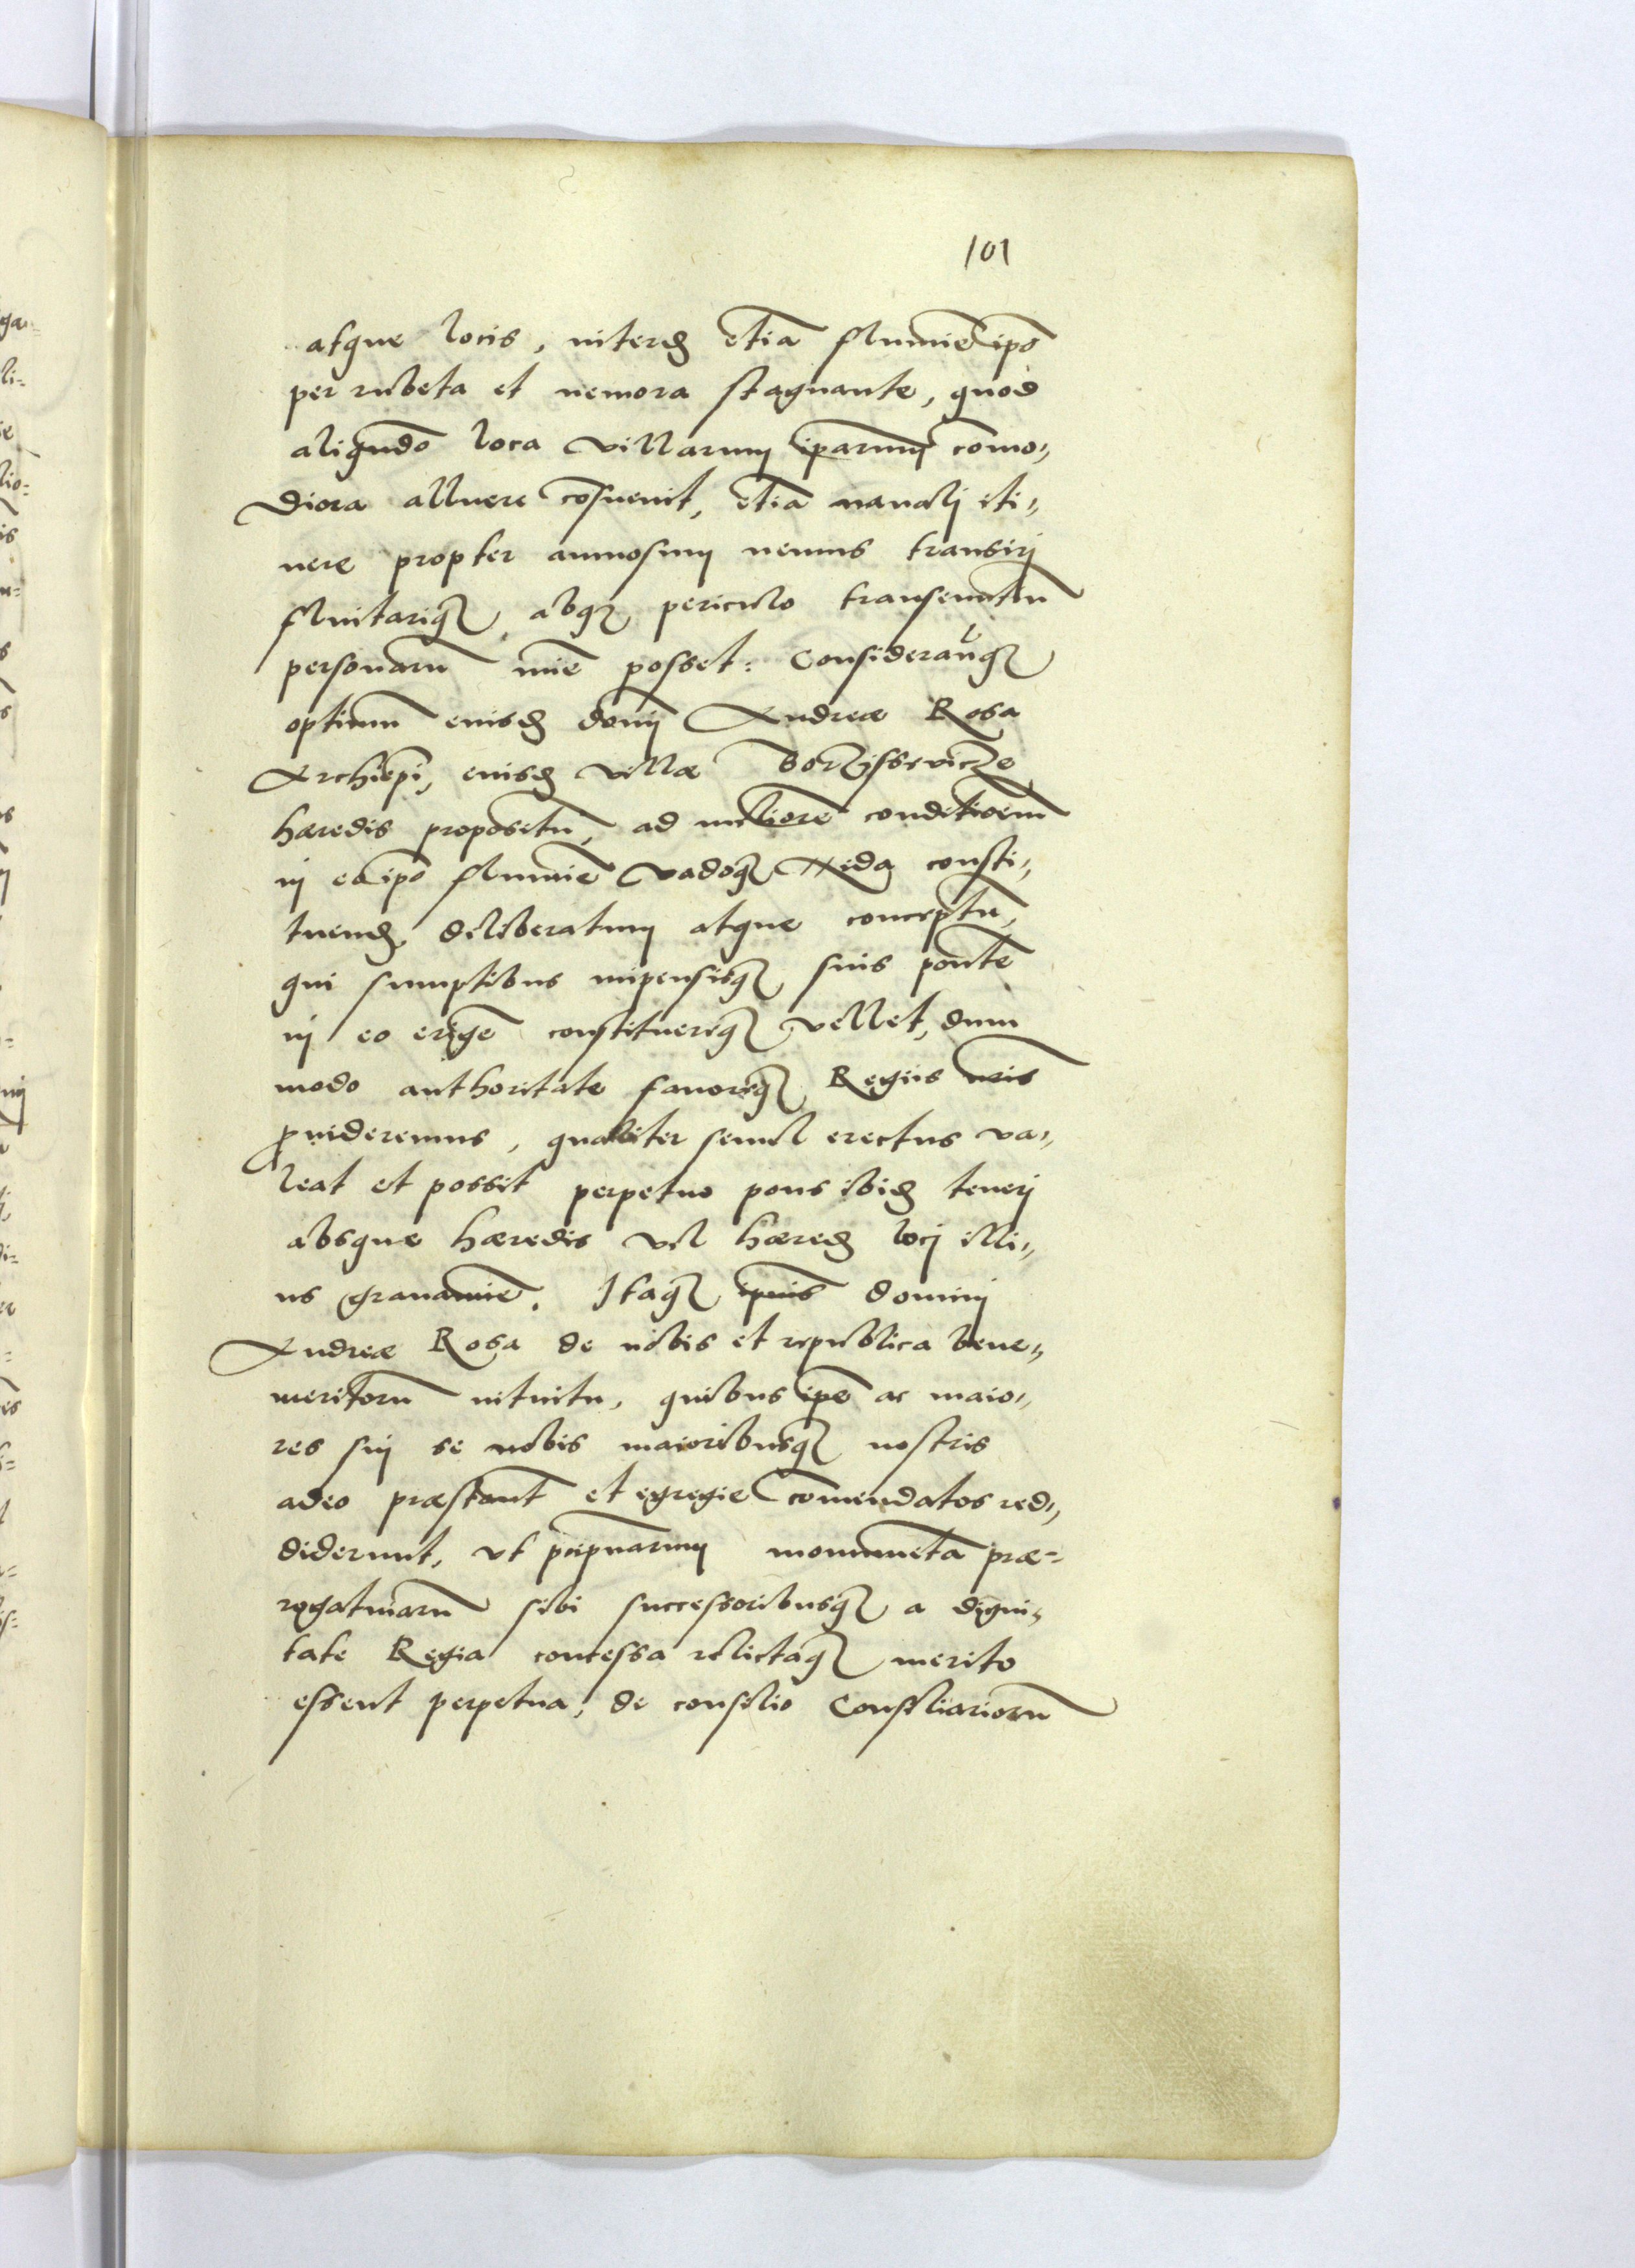 101
atque locis, interd etiā flumiē ipō
per rubeta et nemora stagnante, quod
aliqndō loca villarum iparum cōmo„
diora alluere cōsuevit, etiā navali iti„
nere propter annosum nemus transiri
fluitariq absq periculo transeuntiū
personarū miē posset: Consideravq
optimū eiusd domi Andreæ Rosa
Archiepi, eiusd villæ Borzisswicze
hæredis propositū, ad meliorē conditioem
in ea ipō flumiē vadoq Nida consti„
tuend, deliberatum atque conceptū,
qui sumptibus impensisq suis pontē
in eo erigē constituereq vellet, dum
modo authoritate favoreq Regiis nris
provideremus, qualiter semel erectus va„
leat et possit perpetuo pons ibid teneri
absque hæredis vel hæred loci illi„
us gravamiē. Itaq ipius domini
Andreæ Rosa de nobis et republica bene„
meritorū intuitu, quibus ipe ac maio„
res sui se nobis maioribusq nostris
adeo præstant et egregie cōmendatos red„
diderunt, ut pcipuarum monumēta præ=
rogativarū sibi successoribusq a digni„
tate Regia concessa relictaq merito
essent perpetua, de consilio Consiliariorū